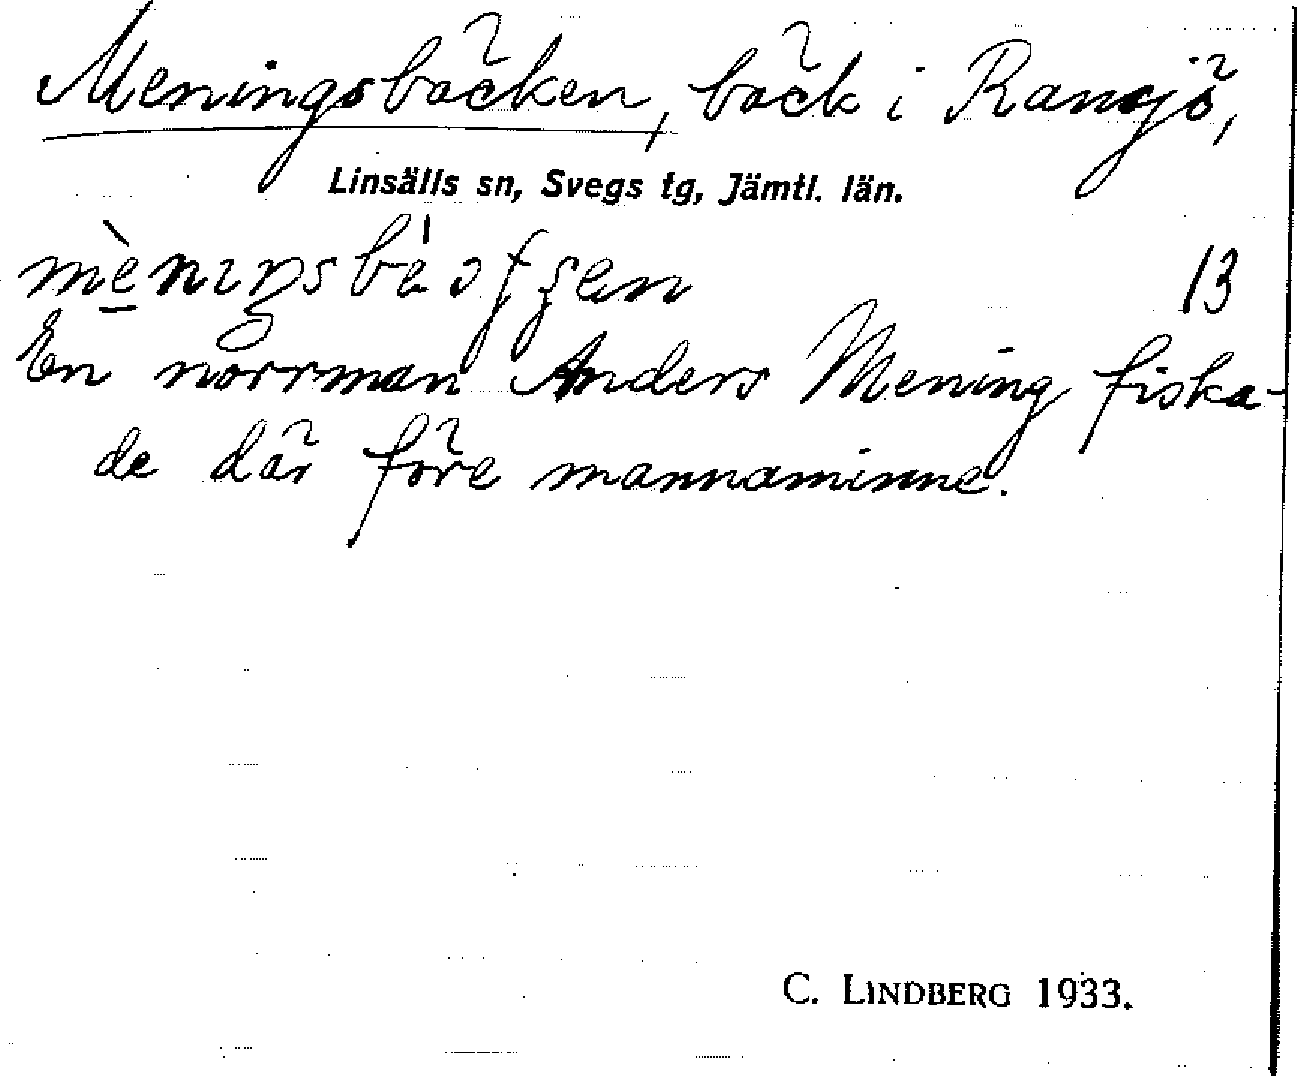 Meningsbäcken, bäck i Ransjö,
Linsälls sn, Svegs tg, Jämtl. län.
13
En norrman Anders Mening fiska-
de där före mannaminne.
C. LINDBERG 1933.